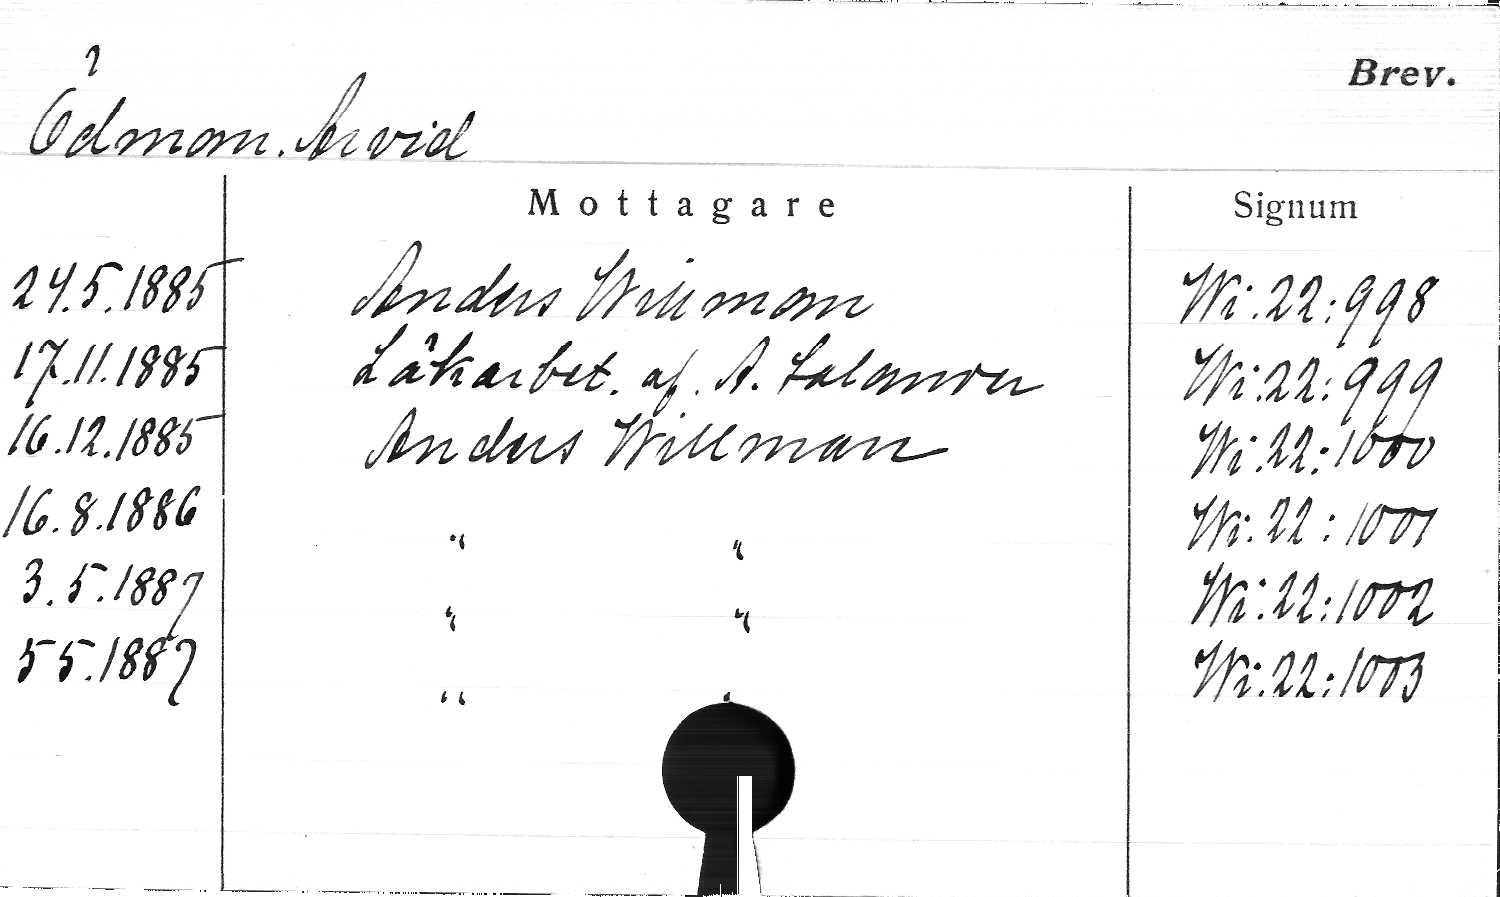 Brev.
Ödman. Arvid
Mottagare Signum
24.5.1885 Anders Willman Wi:22:998
17.11.1885 af A. Wi:22:999
16.12.1885 Anders Willman Wi:22:1000
16.8.1886 " " Wi:22:1001
3.5.1887 " " Wi:22:1002
5 5.1887 " " Wi:22:1003